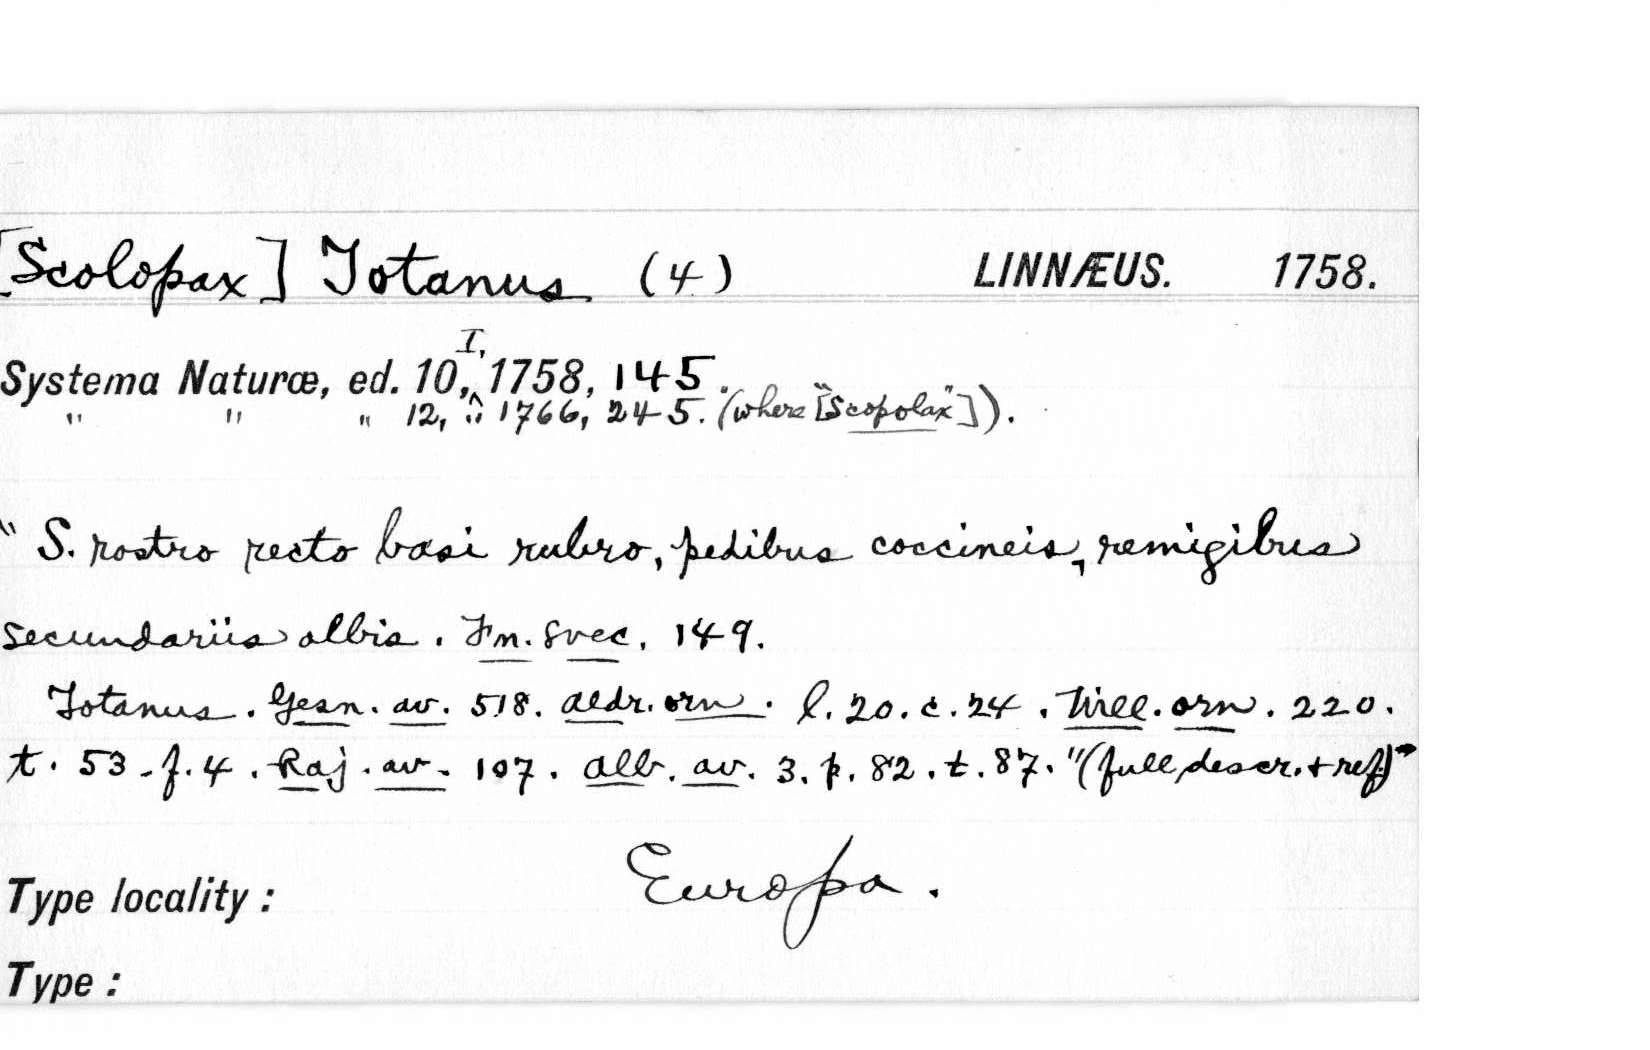 [Scolopax] Totanus (4) LINNÆUS. 1758.
Systema Naturæ, ed. 10, I, 1758, 145.
" " " 12, ": 1766, 245. (where ["Scopolax"]).
"S. rostro recto basi rubro, pedibus coccineis, remigibus
secundariis albis. Fn. svec. 149.
Totanus. Gesn. av. 518. aldr. orn. l. 20. c. 24. Will. orn. 220.
t. 53. f. 4. Raj. av. 107. alb. av. 3. p. 82. t. 87. "(full descr. + ref)"
Type locality: Europa.
Type: